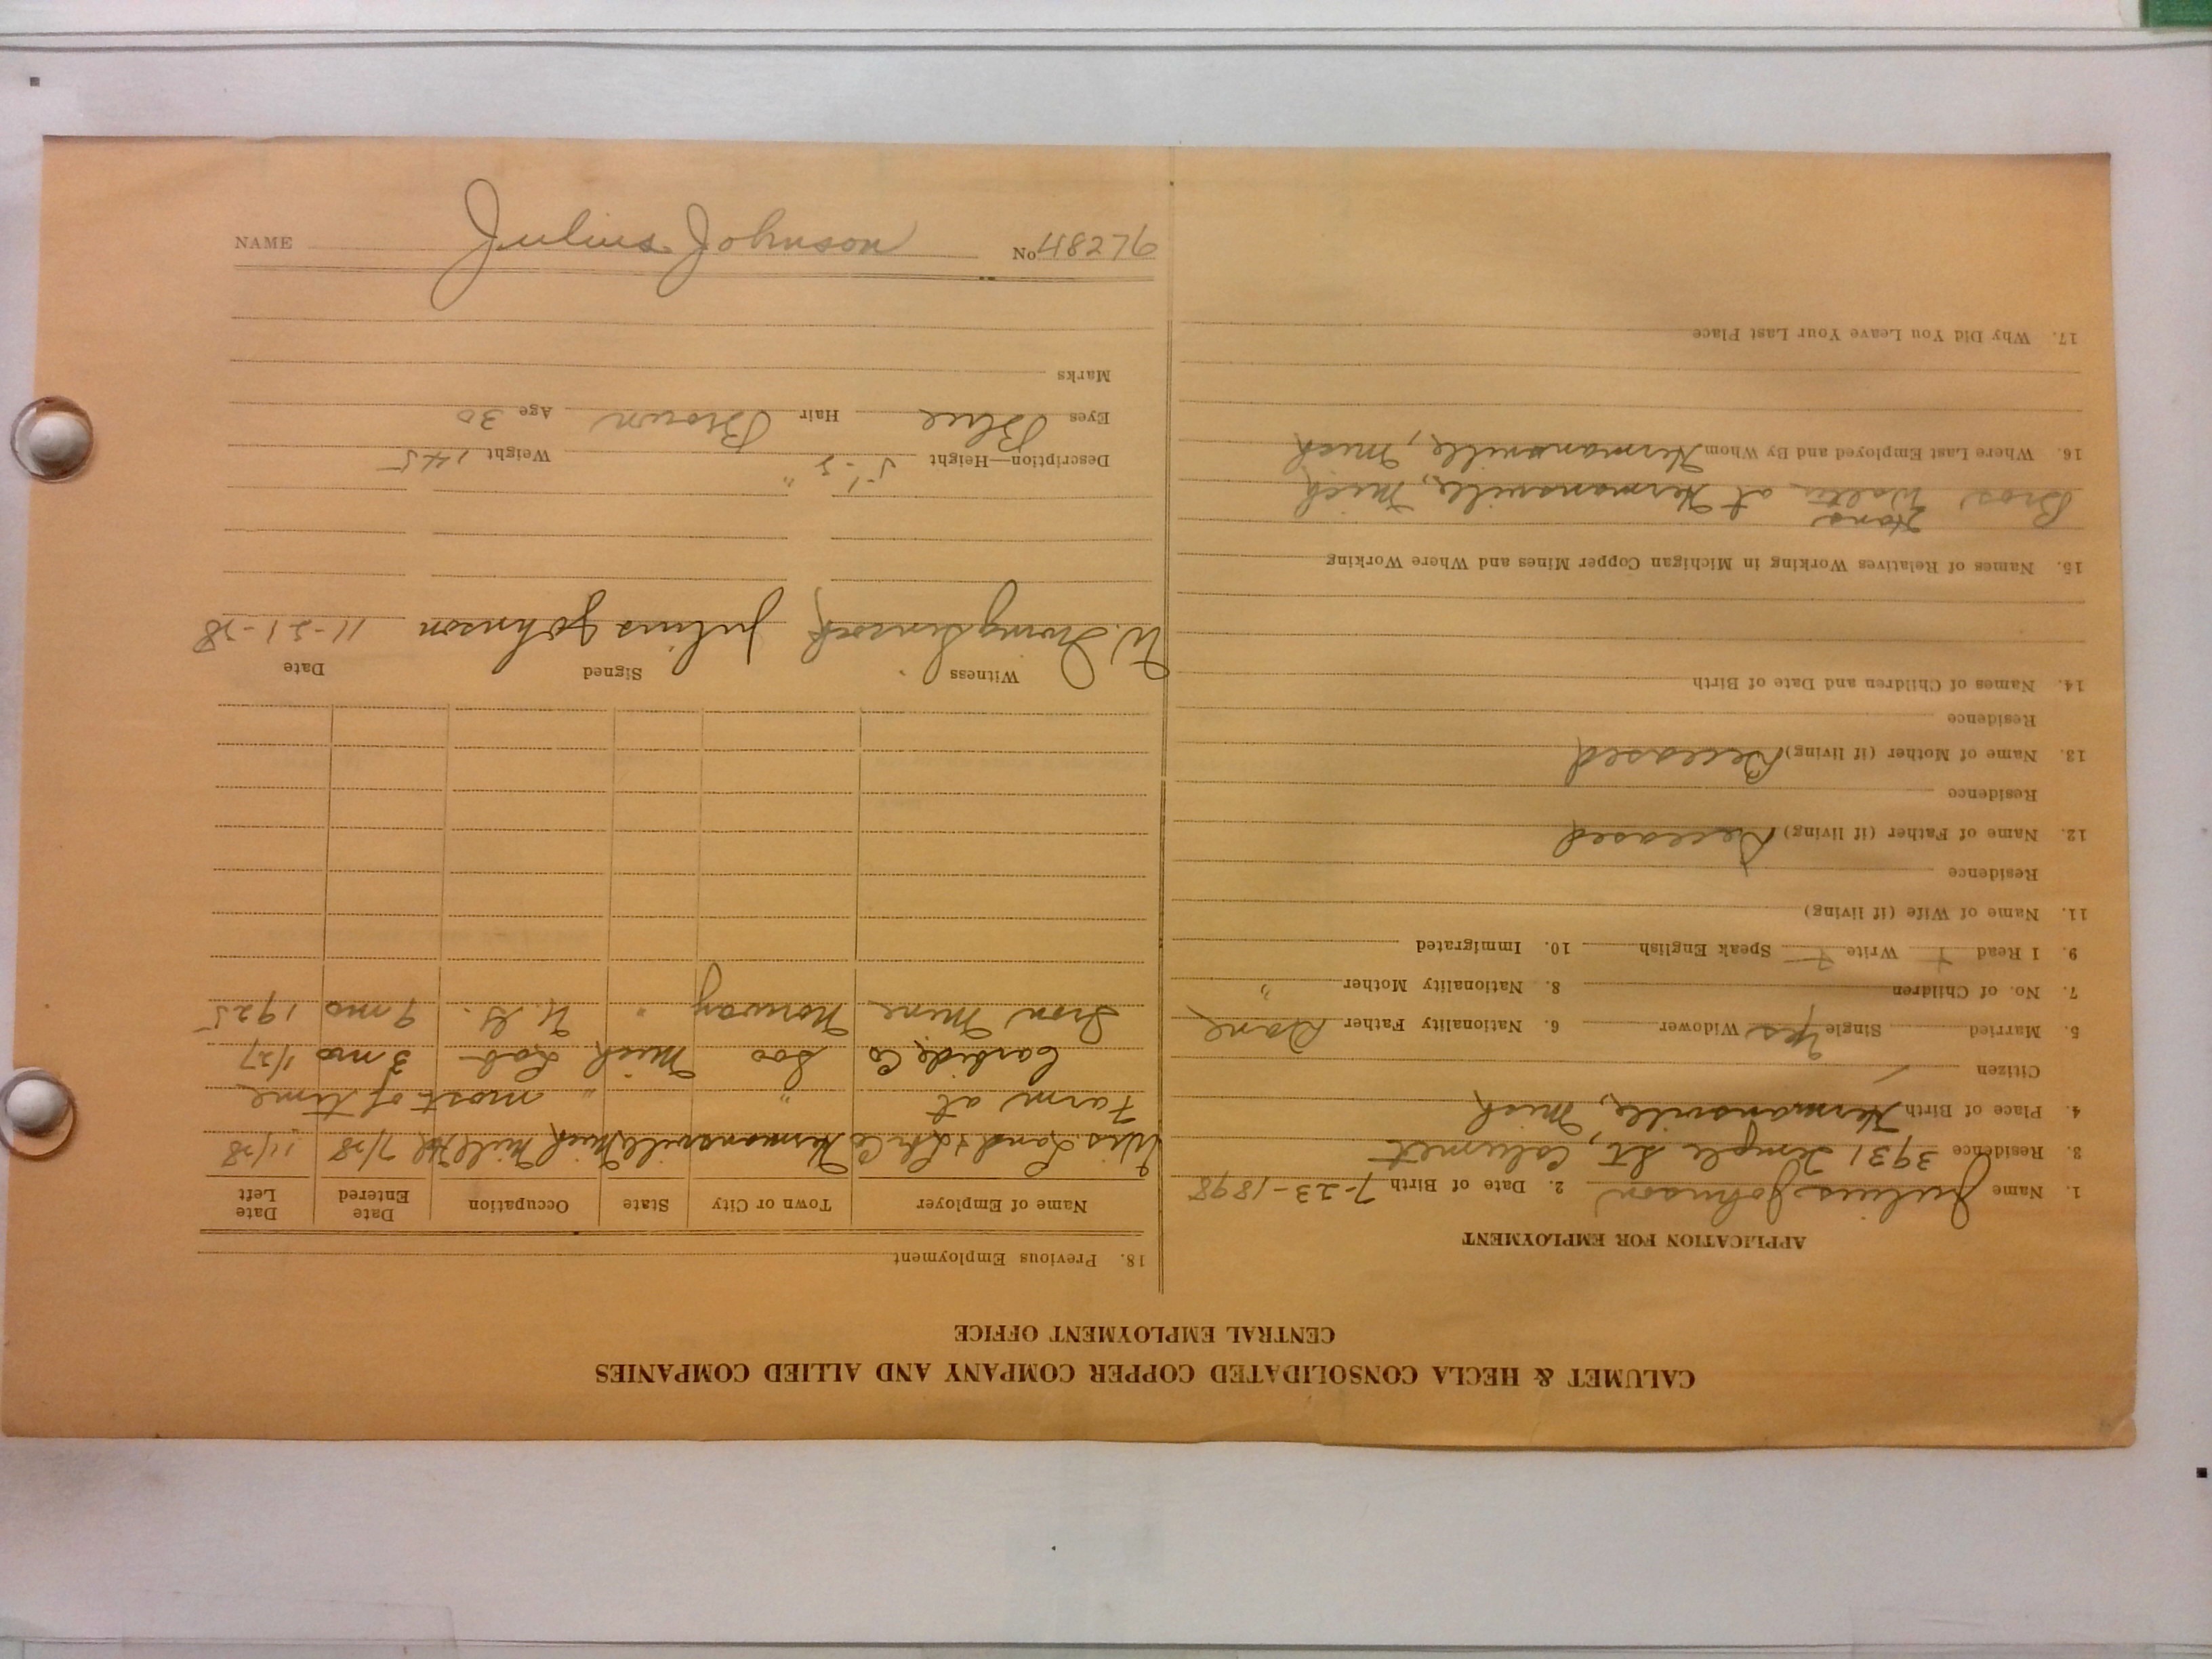 CALUMET & HECLA CONSOLIDATED COPPER COMPANY AND ALLIED COMPANIES
CENTRAL EMPLOYMENT OFFICE
APPLICATION FOR EMPLOYMENT
1. Name Julius Johnson 2. Date of Birth 7-23-1898
3. Residence 3931 Temple St, Calumet
4. Place of Birth Hermansville, Mich
Citizen /
5. Married Single Yes Widower 6. Nationality Father Dane
7. No. of Children 8. Nationality Mother "
9. I Read + Write + Speak English 10. Immigrated
11. Name of Wife (if living)
Residence
12. Name of Father (if living) Deceased
Residence
13. Name of Mother (if living) Deceased
Residence
14. Names of Children and Date of Birth
15. Names of Relatives Working in Michigan Copper Mines and Where Working
Hans
Bros. Walter at Hermansville, Mich
16. Where Last Employed and By Whom Hermansville, Mich
17. Why Did You Leave Your Last Place
18. Previous Employment
Name of Employer Town or City State Occupation Date Entered Date Left
Wis. Land & Lbr Co Hermansville Mich Mill 7/28 11/28
Farm at " " most of time
Carbide Co Soo Mich Lab 3 mo 1/27
Iron Mine Norway " U.G. 9 mo 1925
Witness Signed Date
W. Irving Julius Johnson 11-21-28
Description—Height 5-5" Weight 145
Eyes Blue Hair Brown Age 30
Marks
NAME Julius Johnson No 48276